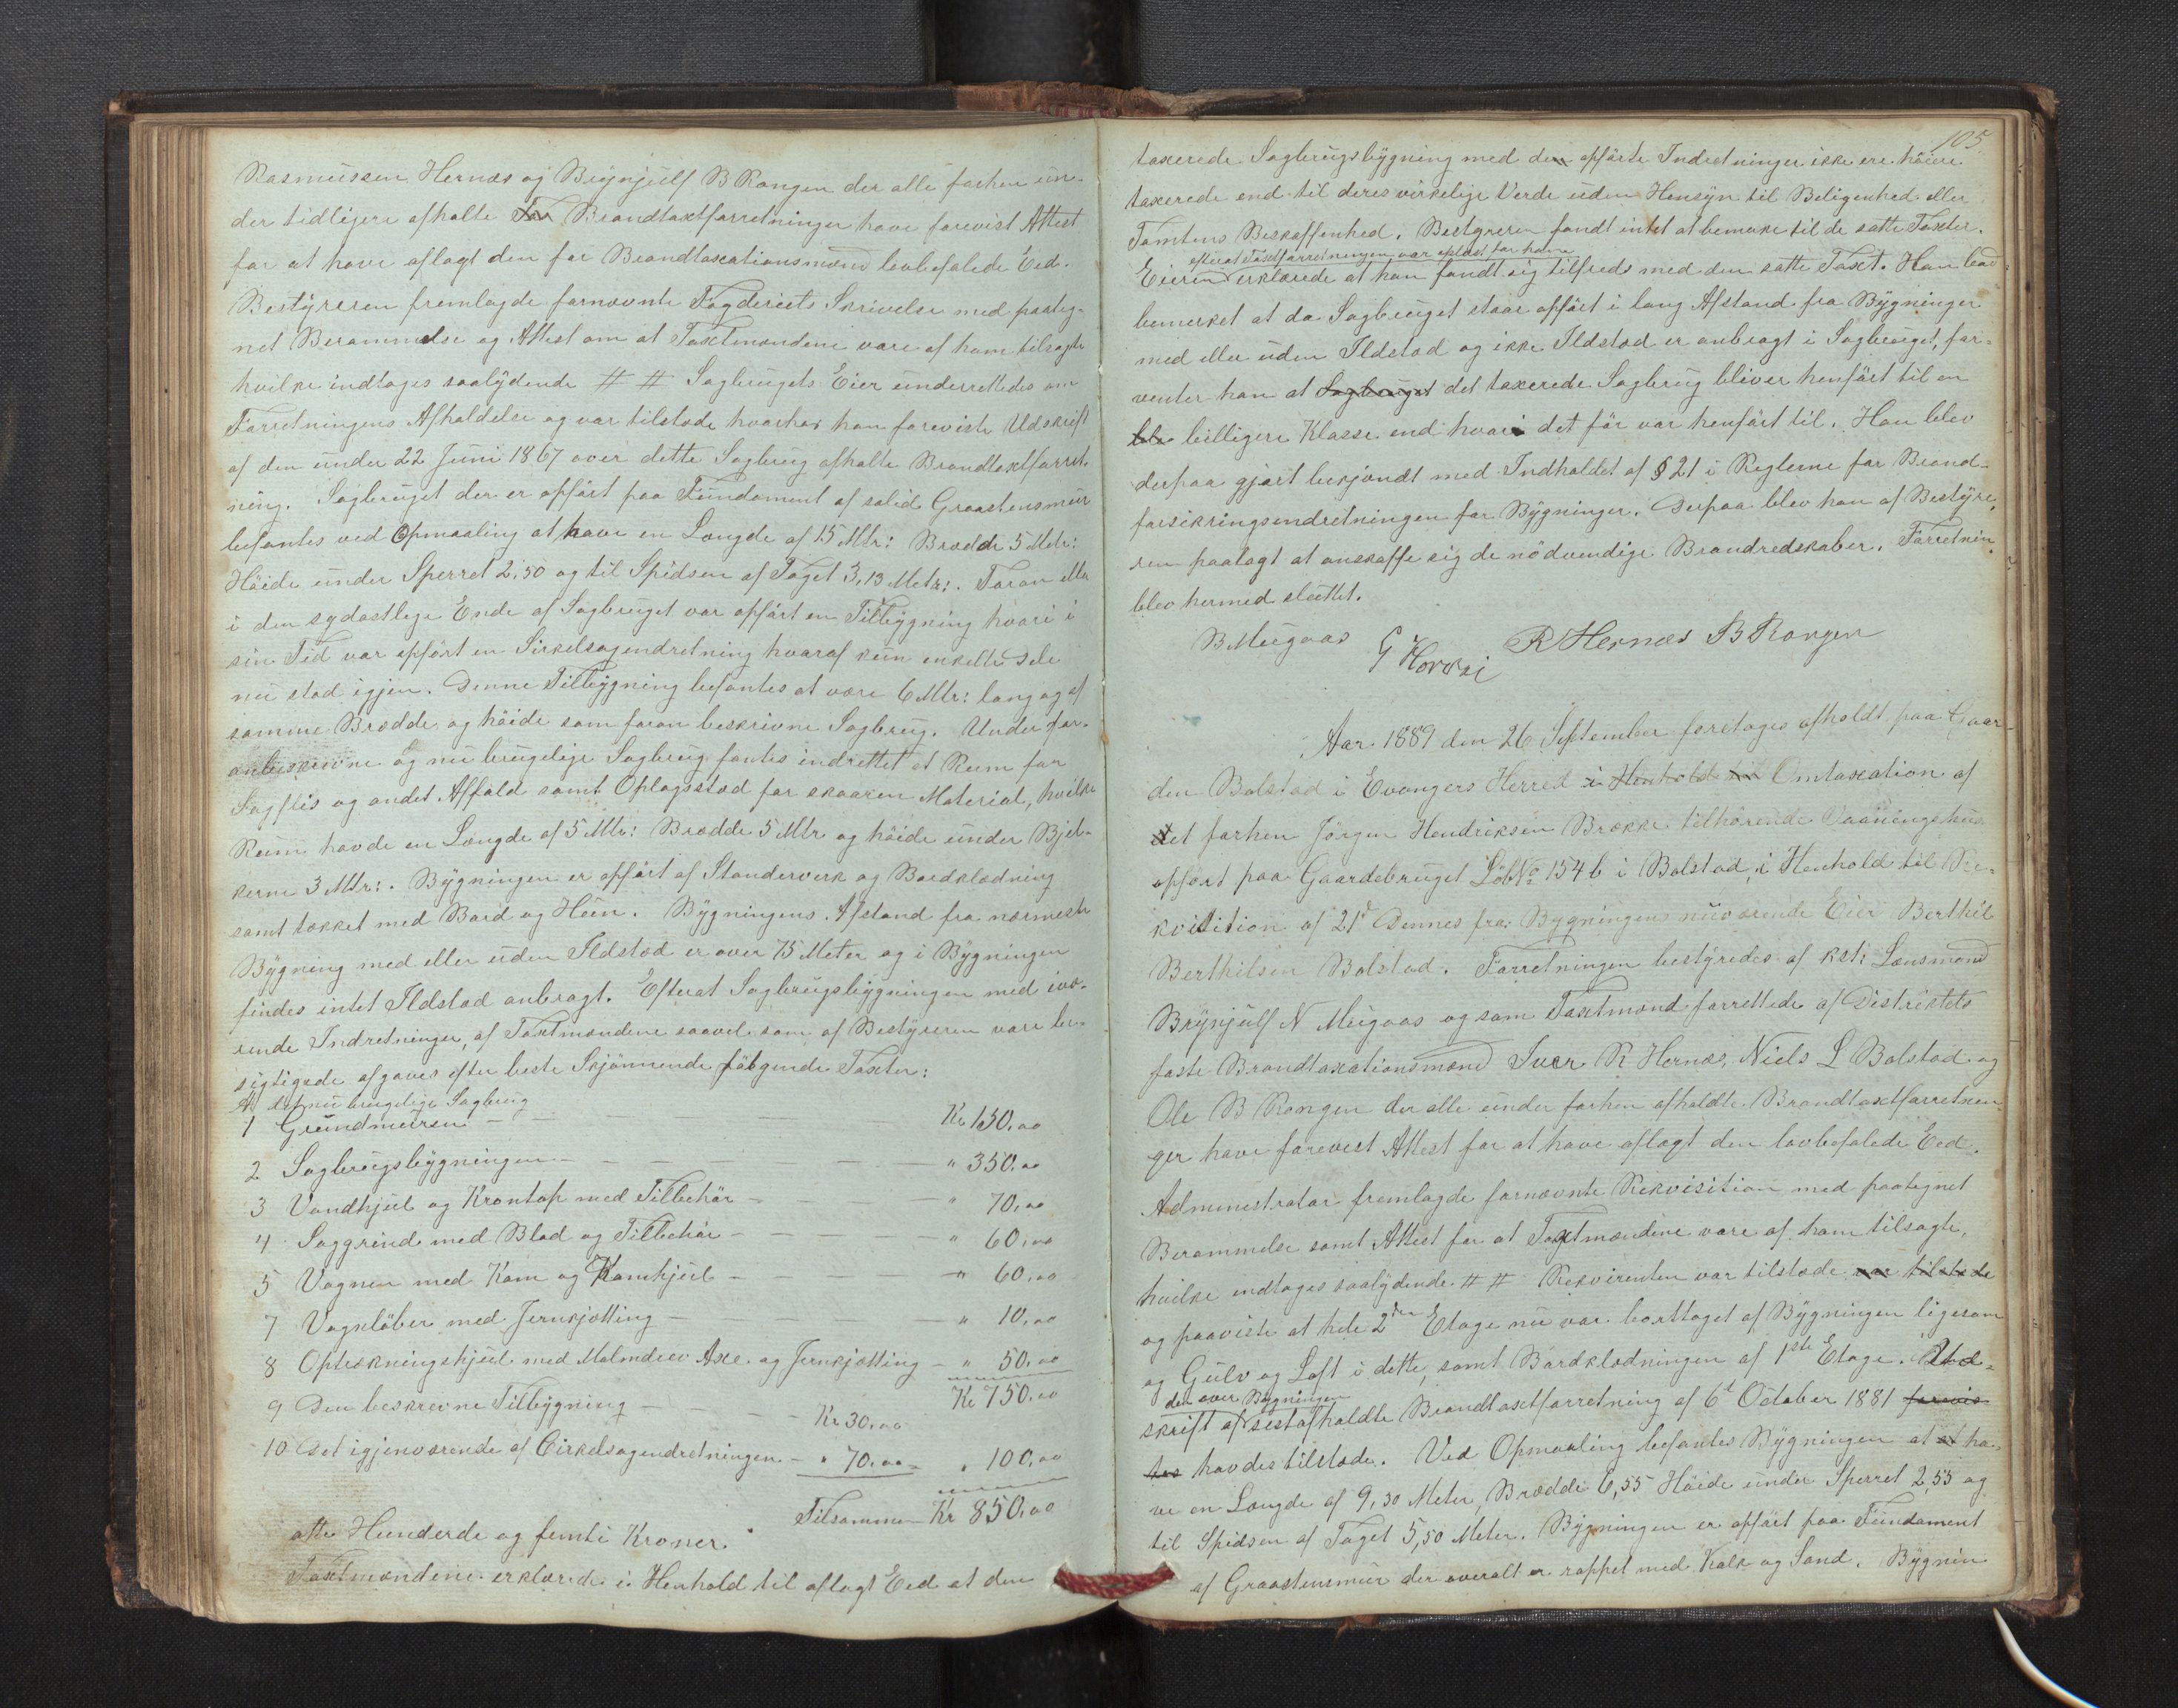 Rasmussen Hernæs og Brynjulf B Rongen der alle forhen un-
der tidligere afholte Brandtaxtforretninger have forevist Attest
for at have aflagt den for Brandtaxationsmænd lovbefalede Eed.
Bestyreren fremlagde fornævnte Fogderiets Skrivelse med paateg-
net Berammelse og Attest om at Taxtmændene vare af ham tilsagte
hvilke indtages saalydende # # Sagbrugets Eier underrettedes om
Forretningens Afholdelse og var tilstede hvorhos han foreviste Udskrift
af den under 22 Juni 1867 over dette Sagbrug afholte Brandtaxtforret-
ning. Sagbruget der er opført paa Fundament af solid Graastensmur
befantes ved Opmaaling at have en Længde af 15 Mtr: Bredde 5 Metr:
Høide under Sperret 2,50 og til Spidsen af Taget 3,13 Metr:. Foran eller
i den sydøstlige Ende af Sagbruget var opført en Tilbygning hvori i
sin Tid var opført en Sirkelsagendretning hvoraf kun enkelte Dele
nu stod igjen. Denne Tilbygning befantes at være 6 Mtr: lang og af
samme Bredde og høide som foran beskrivne Sagbrug. Under for-
anbeskrivne og nu brugelige Sagbrug fantes indrettet et Rum for
Sagflis og andet Affald samt Oplagsstad for skaaren Material, hvilke
Rum havde en Længde af 5 Mtr: Bredde 5 Mtr og høide under Bjel-
kerne 3 Mtr:. Bygningen er opført af Standerverk og Bordklædning
samt tækket med Bord og Heen. Bygningens Afstand fra nærmeste
Bygning med eller uden Ildsted er over 75 Meter og i Bygningen
findes intet Ildsted anbragt. Efterat Sagbrugsbygningen med ivæ-
rende Indretninger, af Taxtmændene saavel som af Bestyreren vare be-
sigtigede afgaves efter beste Skjønnende følgende Taxter:
A. det nu brugelige Sagbrug
1 Grundmuren — — — — Kr 150,00
2 Sagbrugsbygningen — — — — " 350,00
3 Vandhjul og Krontap med Tilbehør — — — — " 70,00
4 Saggrind med Blad og Tilbehør — — — — " 60,00
5 Vognen med Kam og Kamhjul — — — — " 60,00
7 Vogsløber med Jernkjetting — — — — " 10,00
8 Optrækningshjul med Malmdrev Axe og Jernkjetting — " 50,00
Kr 750,00
9 Den beskrevne Tilbygning — — — Kr 30,00
10 Det igjenværende af Cirkelsagendretningen — " 70,00 = " 100,00
Tilsammen Kr 850,00
otte Hunderde og femti Kroner.
Taxtmændene erklærede i Henhold til aflagt Eed at den
105
taxerede Sagbrugsbygning med den opførte Indretninger ikke ere høiere
taxerede end til deres virkelige Verde uden Hensyn til Beligenhed eller
Tomtens Beskaffenhed. Bestyreren fandt intet at bemerke til de satte Taxter.
efterat Taxtforretningen var oplæst for ham
Eieren erklærede at han fandt sig tilfreds med den satte Taxt. Han bad
bemerket at da Sagbruget staar opført i lang Afstand fra Bygninger
med eller uden Ildsted og ikke Ildsted er anbragt i Sagbruget, for-
venter han at Sagbruget det taxerede Sagbrug bliver henført til en
ble billigere Klasse end hvori det før var henført til. Han blev
derpaa gjort bekjendt med Indholdet af § 21 i Reglerne for Brand-
forsikringsendretningen for Bygninger. Derpaa blev han af Bestyre-
ren paalagt at anskaffe sig de nødvendige Brandredskaber. Forretnin
blev hermed sluttet.
B Mugaas G Horvei R Hernæs B Rongen
Aar 1889 den 26 September foretoges afholdt paa Gaar-
den Bolstad i Evangers Herred i Henhold til Omtaxation af
det forhen Jørgen Hendriksen Brække tilhørende Vaaningshus
opført paa Gaardsbruget LøbNo 154 b i Bolstad, i Henhold til Re-
kvisition af 21d Dennes fra Bygningens nuværende Eier Berthil
Berthilsen Bolstad. Forretningen bestyredes af kst: Lensmand
Brynjulf N Mugaas og som Taxtmænd forrettede af Distriktets
faste Brandtaxationsmænd Iver R Hernæs, Niels L Bolstad og
Ole B Rongen der alle under forhen afholdte Brandtaxtforretnin-
ger have forevist Attest for at have aflagt den lovbefalede Eed.
Administrator fremlagde fornævnte Rekvisition med paategnet
Berammelse samt Attest for at Taxtmændene vare af ham tilsagte,
hvilke indtages saalydende # # Rekvirenten var tilstede var tilstede
og paaviste at hele 2den Etage nu var borttaget af Bygningen ligesom
og Gulv og Loft i dette, samt Bordklædningen af 1ste Etage. Ud-
den over Bygningen
skrift af sidst afholdte Brandtaxtforretning af 6t October 1881 forevis-
tes havdes tilstede. Ved Opmaaling befantes Bygningen at at ha-
ve en Længde af 9,30 Meter, Bredde 6,55 Høide under Sperret 2,55 og
til Spidsen af Taget 5,50 Meter. Bygningen er opført paa Fundament
af Graastensmur der overalt er rappet med Kalk og Sand. Bygnin